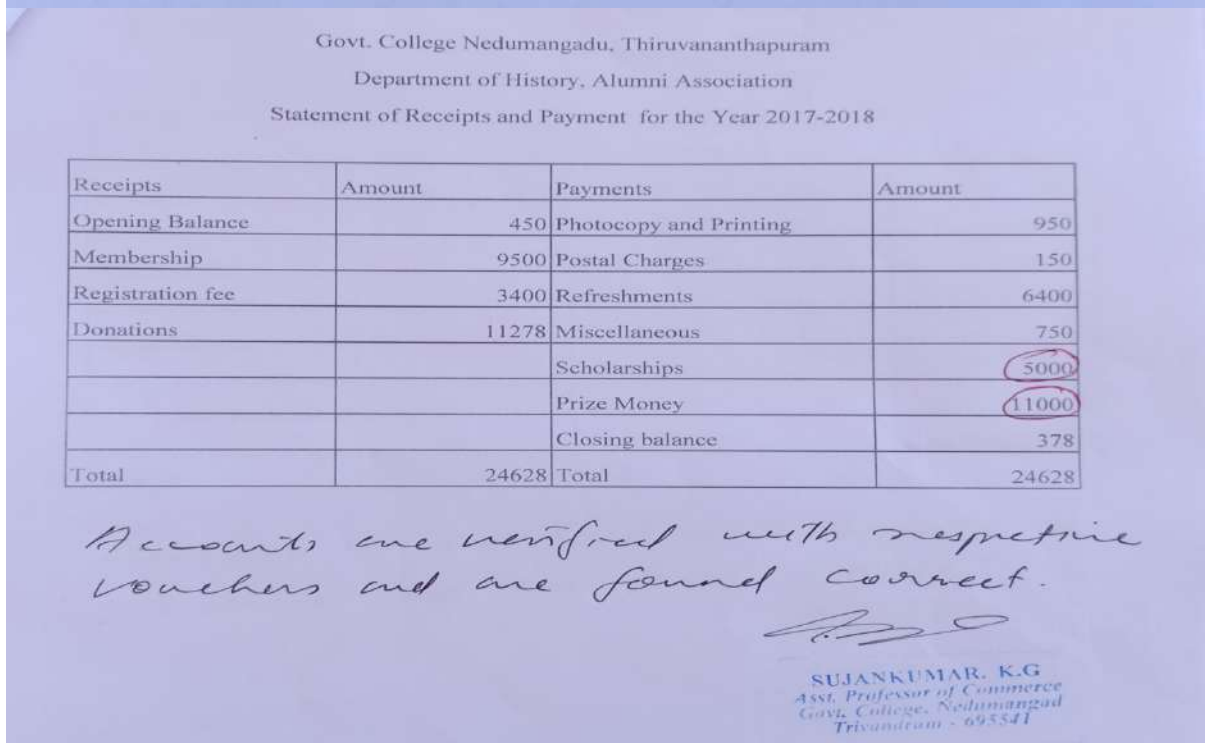 Govt. College Nedumangadu, Thiruvananthapuram
Department of History, Alumni Association
Statement of Receipts and Payment for the Year 2017-2018
Receipts Amount Payments Amount
Opening Balance 450 Photocopy and Printing 950
Membership 9500 Postal Charges 150
Registration fee 3400 Refreshments 6400
Donations 11278 Miscellaneous 750
Scholarships 5000
Prize Money 11000
Closing balance 378
Total 24628 Total 24628
Accounts are verified with respective
vouchers and are found correct.
SUJANKUMAR. K.G
Asst. Professor of Commerce
Govt. College, Nedumangad
Trivandrum - 695541